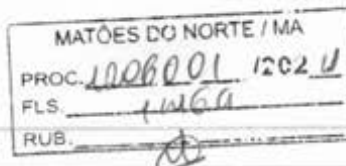 MATÕES DO NORTE / MA
PROC. 1206001 /202
FLS.
RUB.